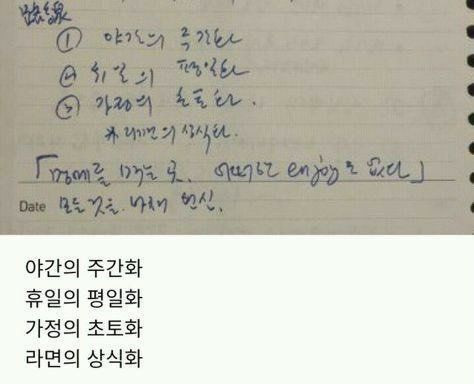 路線
① 야간의 주간화
② 휴일의 평일화
③ 가정의 초토화.
*라면의 상식화.
「명예를 먹는 곳, 어떠한 영광도 없다」
Date 모든 것을 바쳐 헌신.
야간의 주간화
휴일의 평일화
가정의 초토화
라면의 상식화